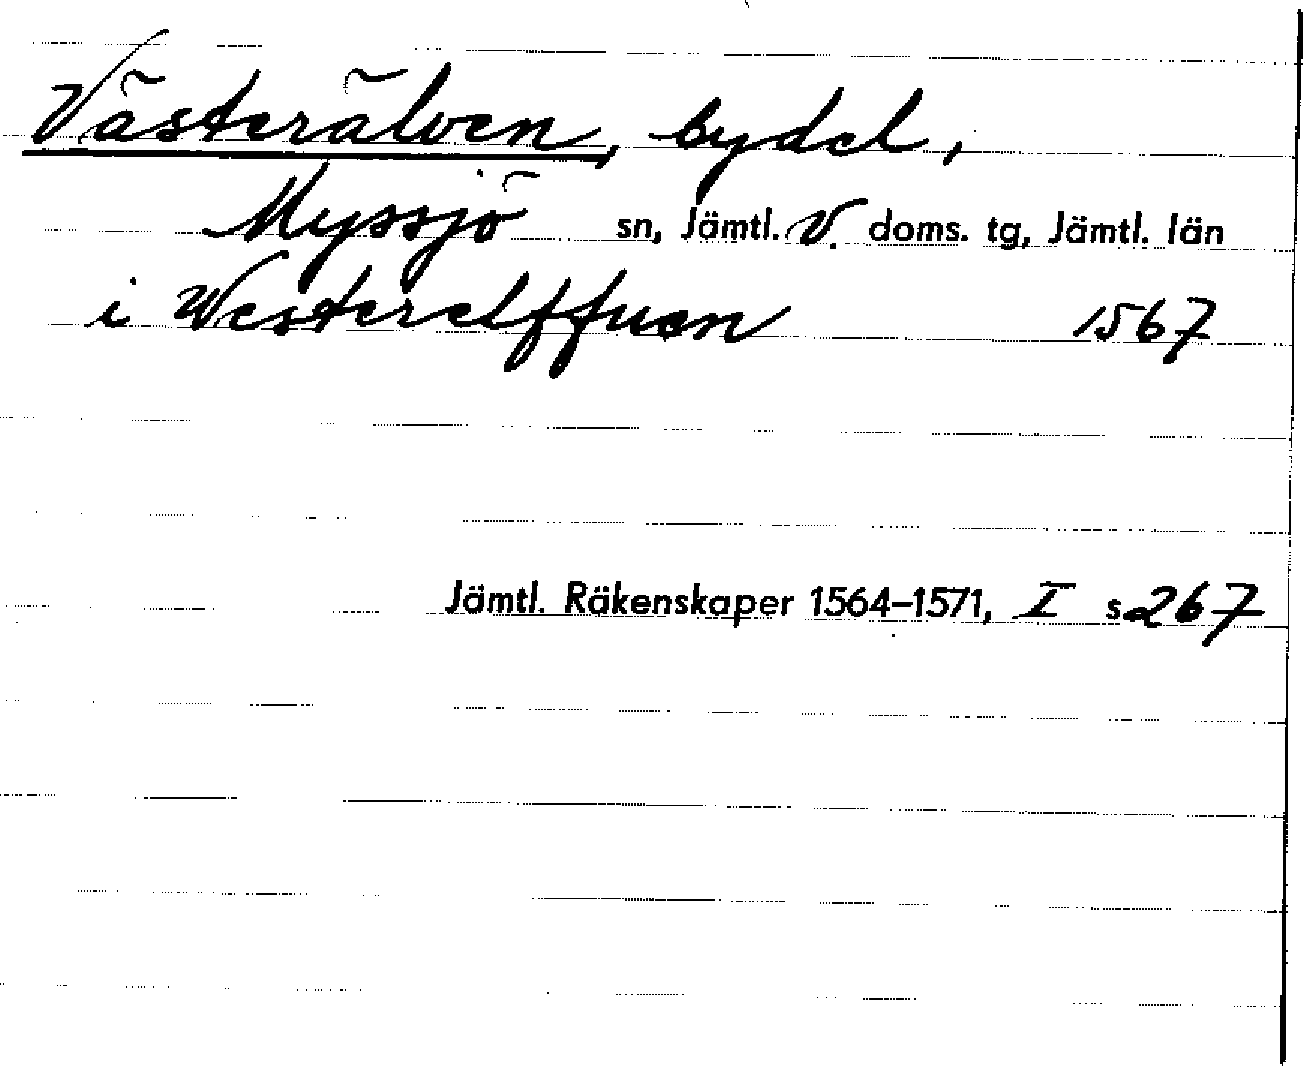 Västerälven, bydel,
Myssjö sn, Jämtl. V. doms. tg, Jämtl. län
i Westerelffuen 1567
Jämtl. Räkenskaper 1564–1571, I s 267